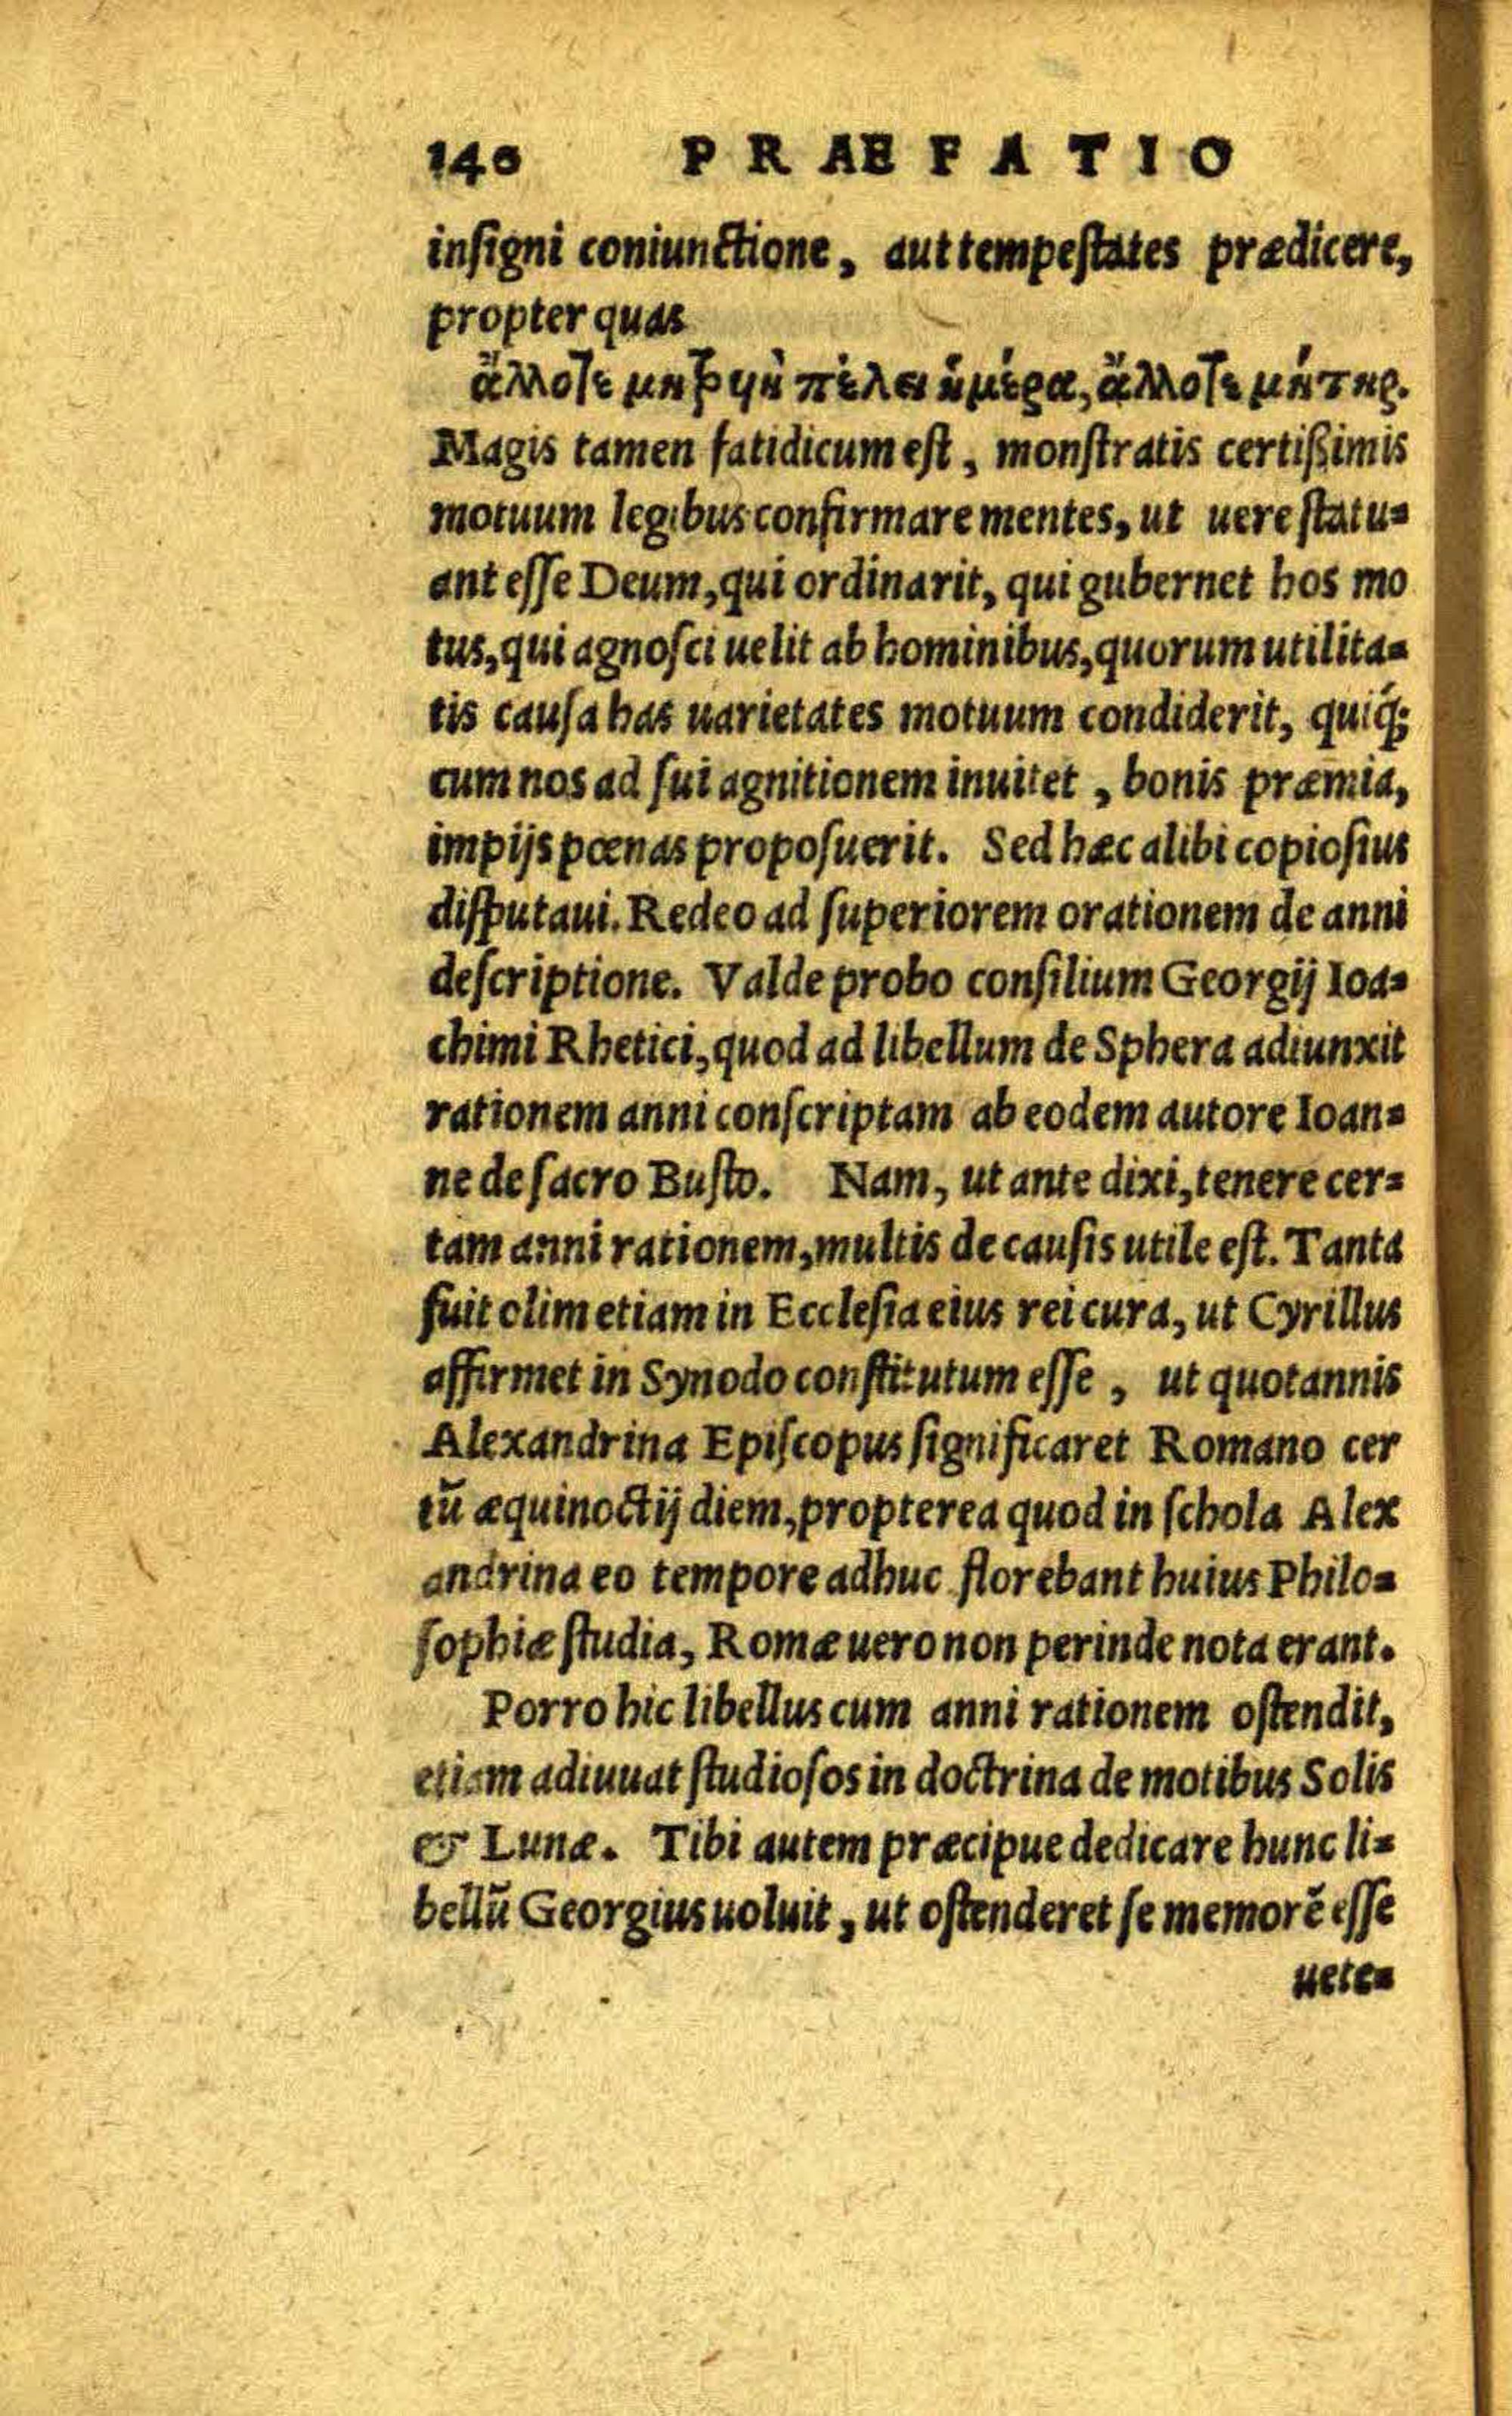 140 PRAEFATIO
insigni coniunctione, aut tempestates prædicere,
propter quas
ἄλλοτε μητρυιὴ πέλει ἡμέρα, ἄλλοτε μήτηρ.
Magis tamen fatidicum est, monstratis certißimis
motuum legibus confirmare mentes, ut uere statu-
ant esse Deum, qui ordinarit, qui gubernet hos mo
tus, qui agnosci uelit ab hominibus, quorum utilita-
tis causa has uarietates motuum condiderit, quiq́;
cum nos ad sui agnitionem inuitet, bonis præmia,
impijs pœnas proposuerit. Sed hæc alibi copiosius
disputaui. Redeo ad superiorem orationem de anni
descriptione. Valde probo consilium Georgij Ioa-
chimi Rhetici, quod ad libellum de Sphera adiunxit
rationem anni conscriptam ab eodem autore Ioan-
ne de sacro Busto. Nam, ut ante dixi, tenere cer-
tam anni rationem, multis de causis utile est. Tanta
fuit olim etiam in Ecclesia eius rei cura, ut Cyrillus
affirmet in Synodo constitutum esse, ut quotannis
Alexandrina Episcopus significaret Romano cer
tū æquinoctij diem, propterea quod in schola Alex
andrina eo tempore adhuc florebant huius Philo-
sophiæ studia, Romæ uero non perinde nota erant.
Porro hic libellus cum anni rationem ostendit,
etiam adiuuat studiosos in doctrina de motibus Solis
& Lunæ. Tibi autem præcipue dedicare hunc li-
bellū Georgius uoluit, ut ostenderet se memorē esse
uete-